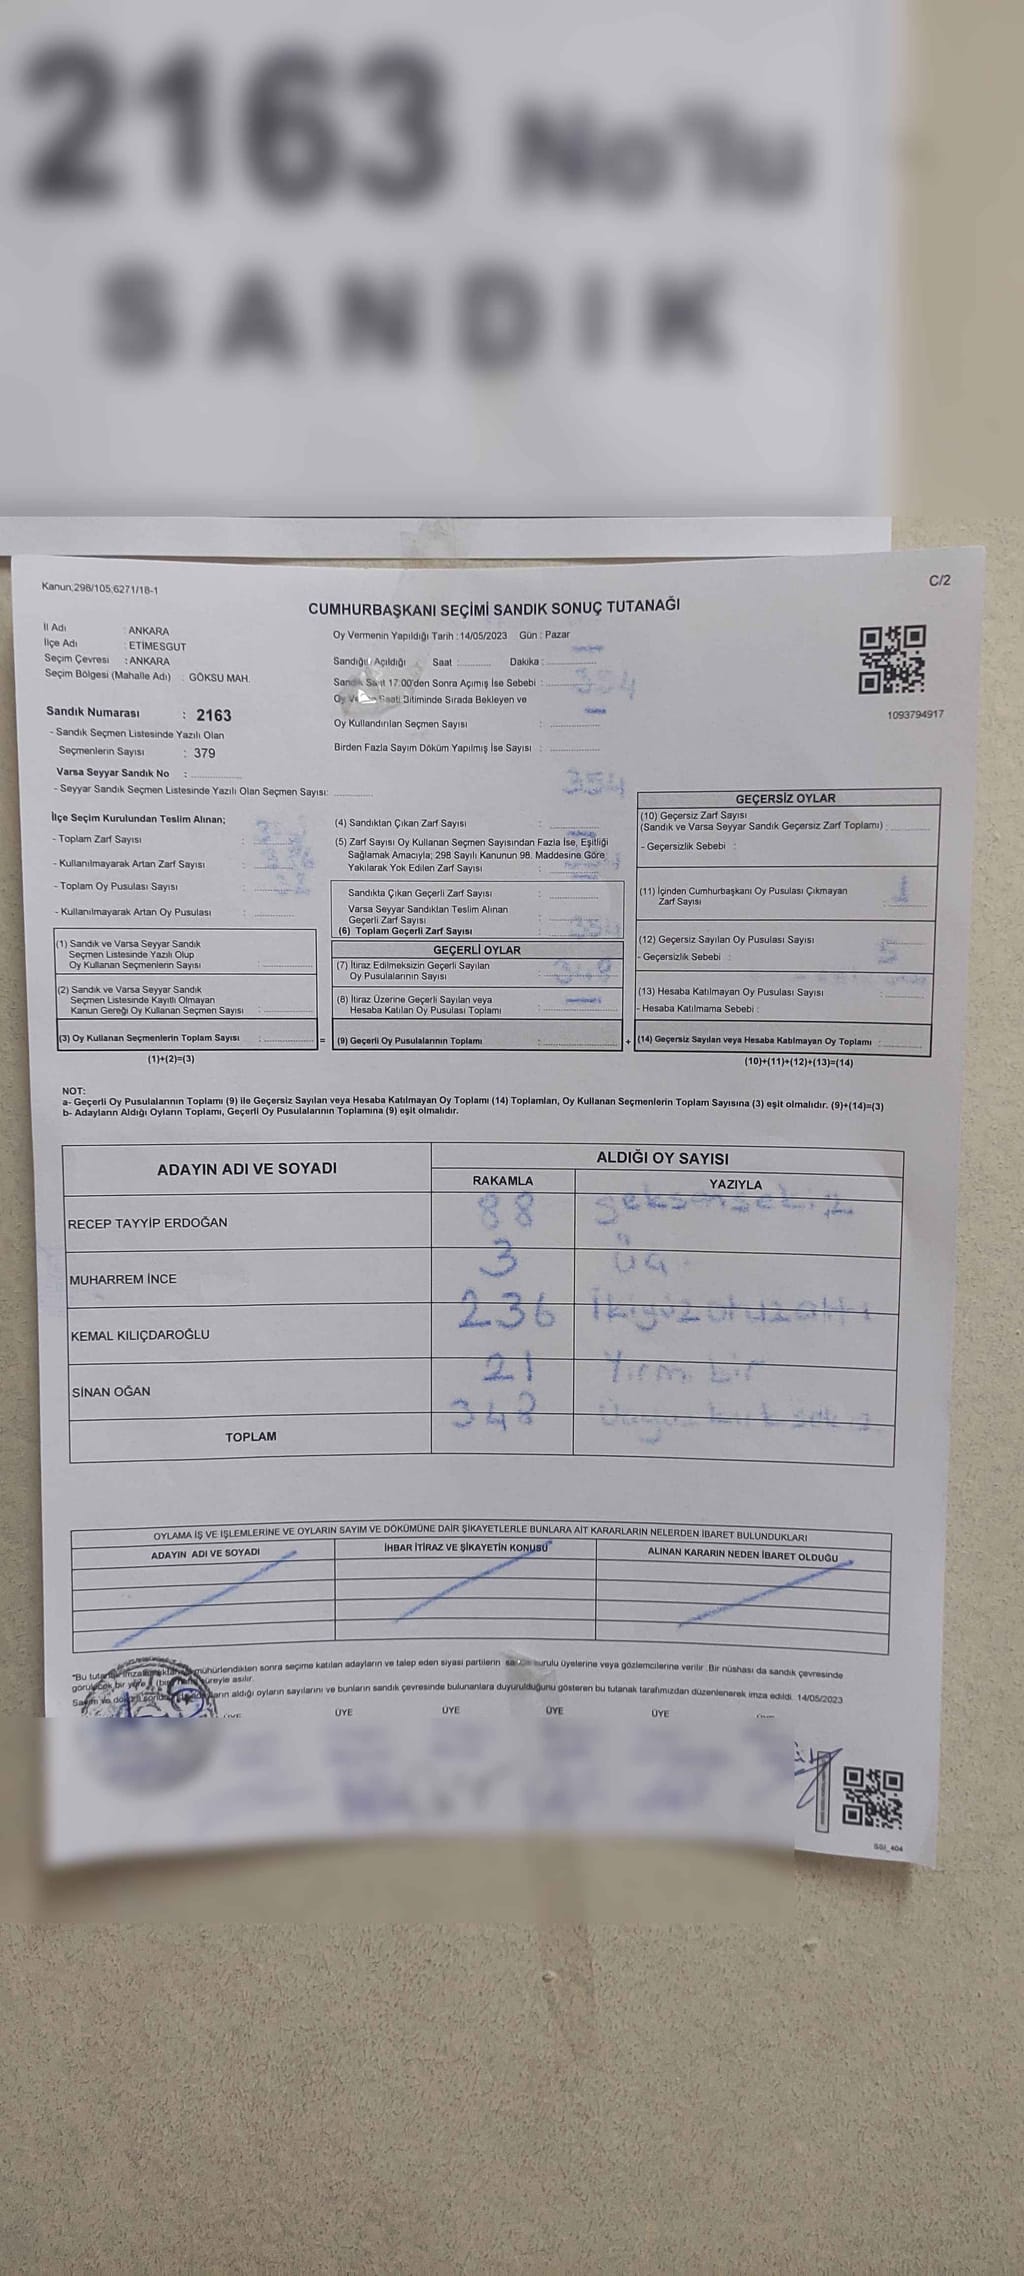 2163 No'lu
SANDIK
Kanun;298/105;6271/18-1
C/2
CUMHURBAŞKANI SEÇİMİ SANDIK SONUÇ TUTANAĞI
İl Adı : ANKARA
İlçe Adı : ETİMESGUT
Seçim Çevresi : ANKARA
Seçim Bölgesi (Mahalle Adı) : GÖKSU MAH.
Sandık Numarası : 2163
- Sandık Seçmen Listesinde Yazılı Olan
Seçmenlerin Sayısı : 379
Varsa Seyyar Sandık No :
- Seyyar Sandık Seçmen Listesinde Yazılı Olan Seçmen Sayısı:
Oy Vermenin Yapıldığı Tarih :14/05/2023 Gün : Pazar
Sandığın Açıldığı Saat : Dakika :
Sandık Saat 17:00'den Sonra Açımış İse Sebebi :
354
Oy Verme Saati Bitiminde Sırada Bekleyen ve
Oy Kullandırılan Seçmen Sayısı :
Birden Fazla Sayım Döküm Yapılmış İse Sayısı :
1093794917
İlçe Seçim Kurulundan Teslim Alınan;
- Toplam Zarf Sayısı :
- Kullanılmayarak Artan Zarf Sayısı :
- Toplam Oy Pusulası Sayısı :
- Kullanılmayarak Artan Oy Pusulası :
(1) Sandık ve Varsa Seyyar Sandık
Seçmen Listesinde Yazılı Olup
Oy Kullanan Seçmenlerin Sayısı :
(2) Sandık ve Varsa Seyyar Sandık
Seçmen Listesinde Kayıtlı Olmayan
Kanun Gereği Oy Kullanan Seçmen Sayısı :
(3) Oy Kullanan Seçmenlerin Toplam Sayısı :
(1)+(2)=(3)
354
(4) Sandıktan Çıkan Zarf Sayısı :
(5) Zarf Sayısı Oy Kullanan Seçmen Sayısından Fazla İse, Eşitliği
Sağlamak Amacıyla; 298 Sayılı Kanunun 98. Maddesine Göre
Yakılarak Yok Edilen Zarf Sayısı :
Sandıkta Çıkan Geçerli Zarf Sayısı :
Varsa Seyyar Sandıktan Teslim Alınan
Geçerli Zarf Sayısı :
354
(6) Toplam Geçerli Zarf Sayısı :
GEÇERLİ OYLAR
(7) İtiraz Edilmeksizin Geçerli Sayılan
Oy Pusulalarının Sayısı : 348
(8) İtiraz Üzerine Geçerli Sayılan veya
Hesaba Katılan Oy Pusulası Toplamı :
= (9) Geçerli Oy Pusulalarının Toplamı : +
GEÇERSİZ OYLAR
(10) Geçersiz Zarf Sayısı
(Sandık ve Varsa Seyyar Sandık Geçersiz Zarf Toplamı) :
- Geçersizlik Sebebi :
(11) İçinden Cumhurbaşkanı Oy Pusulası Çıkmayan
Zarf Sayısı : 1
(12) Geçersiz Sayılan Oy Pusulası Sayısı : 5
- Geçersizlik Sebebi :
(13) Hesaba Katılmayan Oy Pusulası Sayısı :
- Hesaba Katılmama Sebebi :
(14) Geçersiz Sayılan veya Hesaba Katılmayan Oy Toplamı :
(10)+(11)+(12)+(13)=(14)
NOT:
a- Geçerli Oy Pusulalarının Toplamı (9) ile Geçersiz Sayılan veya Hesaba Katılmayan Oy Toplamı (14) Toplamları, Oy Kullanan Seçmenlerin Toplam Sayısına (3) eşit olmalıdır. (9)+(14)=(3)
b- Adayların Aldığı Oyların Toplamı, Geçerli Oy Pusulalarının Toplamına (9) eşit olmalıdır.
ADAYIN ADI VE SOYADI
ALDIĞI OY SAYISI
RAKAMLA YAZIYLA
RECEP TAYYİP ERDOĞAN 88 Seksensekiz
MUHARREM İNCE 3 Üç
KEMAL KILIÇDAROĞLU 236 İkiyüzotuzaltı
SİNAN OĞAN 21 Yirmi bir
TOPLAM 348 Üçyüz kırk sekiz
OYLAMA İŞ VE İŞLEMLERİNE VE OYLARIN SAYIM VE DÖKÜMÜNE DAİR ŞİKAYETLERLE BUNLARA AİT KARARLARIN NELERDEN İBARET BULUNDUKLARI
ADAYIN ADI VE SOYADI İHBAR İTİRAZ VE ŞİKAYETİN KONUSU ALINAN KARARIN NEDEN İBARET OLDUĞU
"Bu mühürlendikten sonra seçime katılan adayların ve talep eden siyasi partilerin sandık kurulu üyelerine veya gözlemcilerine verilir. Bir nüshası da sandık çevresinde
görülecek bir yere süreyle asılır.
aldığı oyların sayılarını ve bunların sandık çevresinde bulunanlara duyurulduğunu gösteren bu tutanak tarafımızdan düzenlenerek imza edildi. 14/05/2023
ÜYE ÜYE ÜYE ÜYE ÜYE